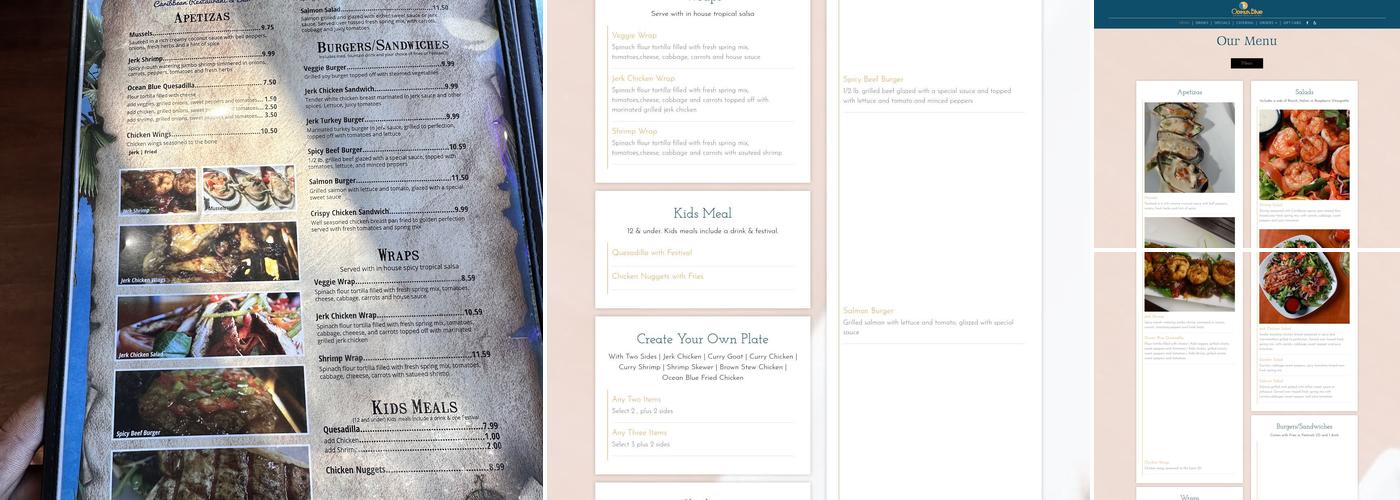 Caribbean Restaurant &
APETIZAS
Mussels 9.75
Sauteed in a rich creamy coconut sauce with bell peppers,
onions, fresh herbs and a hint of spice
Jerk Shrimp 9.99
Spicy mouth watering jumbo shrimp simmered in onions,
carrots, peppers, tomatoes and fresh herbs
Ocean Blue Quesadilla 7.50
Flour tortilla filled with cheese
add veggies, grilled onions, sweet peppers and tomatoes 1.50
add chicken, grilled onions, sweet peppers and tomatoes 2.50
add shrimp, grilled onions, sweet peppers and tomatoes 3.50
Chicken Wings 10.50
Chicken wings seasoned to the bone
Jerk | Fried
Jerk Shrimp
Mussels
Jerk Chicken Wings
Jerk Chicken Salad
Spicy Beef Burger
Salmon Salad 11.50
Salmon grilled and glazed with either sweet sauce or jerk
sauce. Served over tossed fresh spring mix, with carrots,
cabbage and juicy tomatoes
BURGERS/SANDWICHES
Veggie Burger 9.99
Grilled soy burger topped off with steamed vegetables
Jerk Chicken Sandwich 9.99
Tender white chicken breast marinated in jerk sauce and other
spices. Lettuce, juicy tomatoes
Jerk Turkey Burger 9.99
Marinated turkey burger in jerk sauce, grilled to perfection,
topped off with tomatoes and lettuce
Spicy Beef Burger 10.59
1/2 lb. grilled beef glazed with a special sauce, topped with
tomatoes, lettuce, and minced peppers
Salmon Burger 11.50
Grilled salmon with lettuce and tomato, glazed with a special
sweet sauce
Crispy Chicken Sandwich 9.99
Well seasoned chicken breast pan fried to golden perfection
served with fresh tomatoes and spring mix
WRAPS
Served with in house spicy tropical salsa
Veggie Wrap 8.59
Spinach flour tortilla filled with fresh spring mix, tomatoes,
cheese, cabbage, carrots and house sauce
Jerk Chicken Wrap 10.59
Spinach flour tortilla filled with fresh spring mix, tomatoes,
cabbage, cheese, and carrots topped off with marinated
grilled jerk chicken
Shrimp Wrap 11.59
Spinach flour tortilla filled with fresh spring mix, tomatoes,
cabbage, cheese, carrots with satueed shrimp
KIDS MEALS
(12 and under) Kids meals include a drink & one Festival
Quesadilla 7.99
add Chicken 1.00
add Shrimp 2.00
Chicken Nuggets 8.99
Wraps
Serve with in house tropical salsa
Veggie Wrap
Spinach flour tortilla filled with fresh spring mix,
tomatoes,cheese, cabbage, carrots and house sauce
Jerk Chicken Wrap
Spinach flour tortilla filled with fresh spring mix,
tomatoes,cheese, cabbage and carrots topped off with
marinated grilled jerk chicken
Shrimp Wrap
Spinach flour tortilla filled with fresh spring mix,
tomatoes,cheese, cabbage and carrots with sauteed shrimp
Kids Meal
12 & under. Kids meals include a drink & festival.
Quesadilla with Festival
Chicken Nuggets with Fries
Create Your Own Plate
With Two Sides | Jerk Chicken | Curry Goat | Curry Chicken |
Curry Shrimp | Shrimp Skewer | Brown Stew Chicken |
Ocean Blue Fried Chicken
Any Two Items
Select 2 , plus 2 sides
Any Three Items
Select 3 plus 2 sides
Spicy Beef Burger
1/2 lb. grilled beef glazed with a special sauce and topped
with lettuce and tomato and minced peppers
Salmon Burger
Grilled salmon with lettuce and tomato, glazed with special
sauce
Ocean Blue
MENU | DRINKS | SPECIALS | CATERING | ORDERS | GIFT CARD
Our Menu
Apetizas
Salads
Mussels
Shrimp Salad
Jerk Shrimp
Ocean Blue Quesadilla
Chicken Wings
Jerk Chicken Salad
Garden Salad
Salmon Salad
Burgers/Sandwiches
Wraps